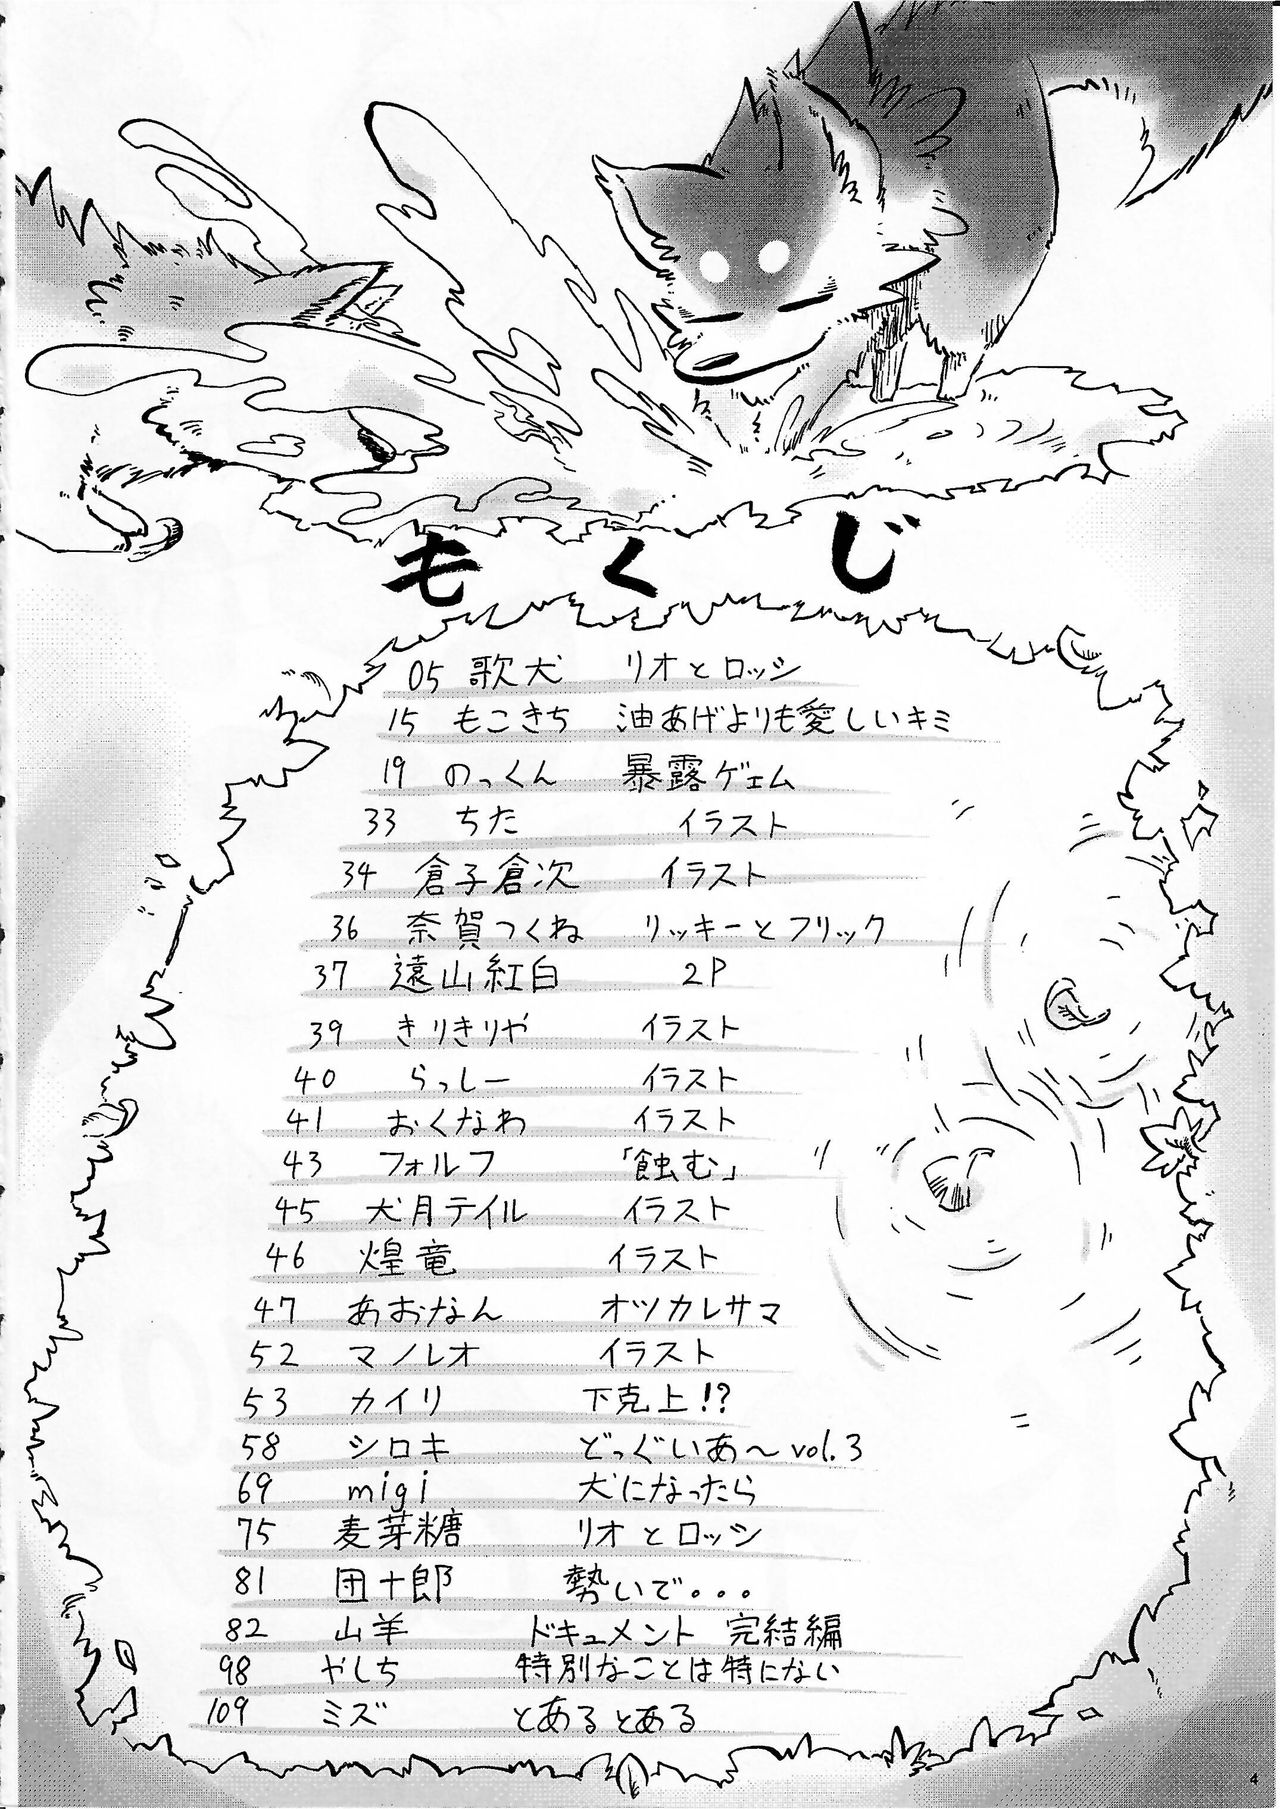 もくじ
05 歌犬 リオとロッシ
15 もこきち 油あげよりも愛しいキミ
19 のっくん 暴露ゲェム
33 ちた イラスト
34 倉子倉次 イラスト
36 奈賀つくね リッキーとフリック
37 遠山紅白 2P
39 きりきりや イラスト
40 らっしー イラスト
41 おくなわ イラスト
43 フォルフ 「蝕む」
45 犬月テイル イラスト
46 煌竜 イラスト
47 あおなん オツカレサマ
52 マノレオ イラスト
53 カイリ 下克上!?
58 シロキ どっぐいあ～vol.3
69 migi 犬になったら
75 麦芽糖 リオとロッシ
81 団十郎 勢いで・・・
82 山羊 ドキュメント 完結編
98 やしち 特別なことは特にない
109 ミズ とあるとある
4